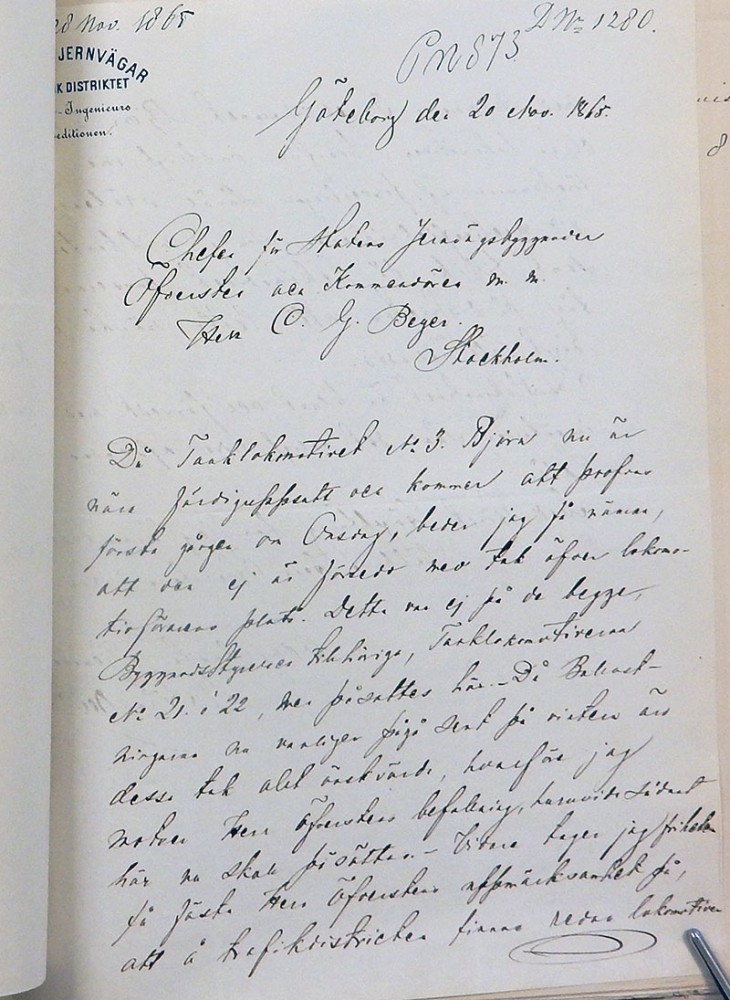 28 Nov. 1865
D No 1280.
JERNVÄGAR
K DISTRIKTET
-Ingenieurs
editionen.
Göteborg den 20 Nov. 1865.
Chefen för Statens Jernvägsbyggnader
Öfversten och Kommendören m. m.
Herr C. G. Beyer.
Stockholm.
Då Tanklokomotivet No 3. Björn nu är
nära färdiguppsatt och kommer att profvas
första gången om Onsdag, beder jag få nämna,
att den ej är försedd med tak öfver lokomo-
tivförarens plats. Detta var ej på de begge,
Byggnadsstyrelsen tillhöriga, Tanklokomotiverna
No 21. & 22, men påsattes här. - Då Ballast-
ningarna nu vanligen pågå sent på vintern äro
dessa tak alet önskvärda, hvarföre jag
motser Herr Öfverstens befallning, huruvida sådant
här nu skall påsättas. - Vidare tager jag friheten
få fästa Herr Öfverstens uppmärksamhet på,
att å trafikdistrikten finnas redan lokomotiver